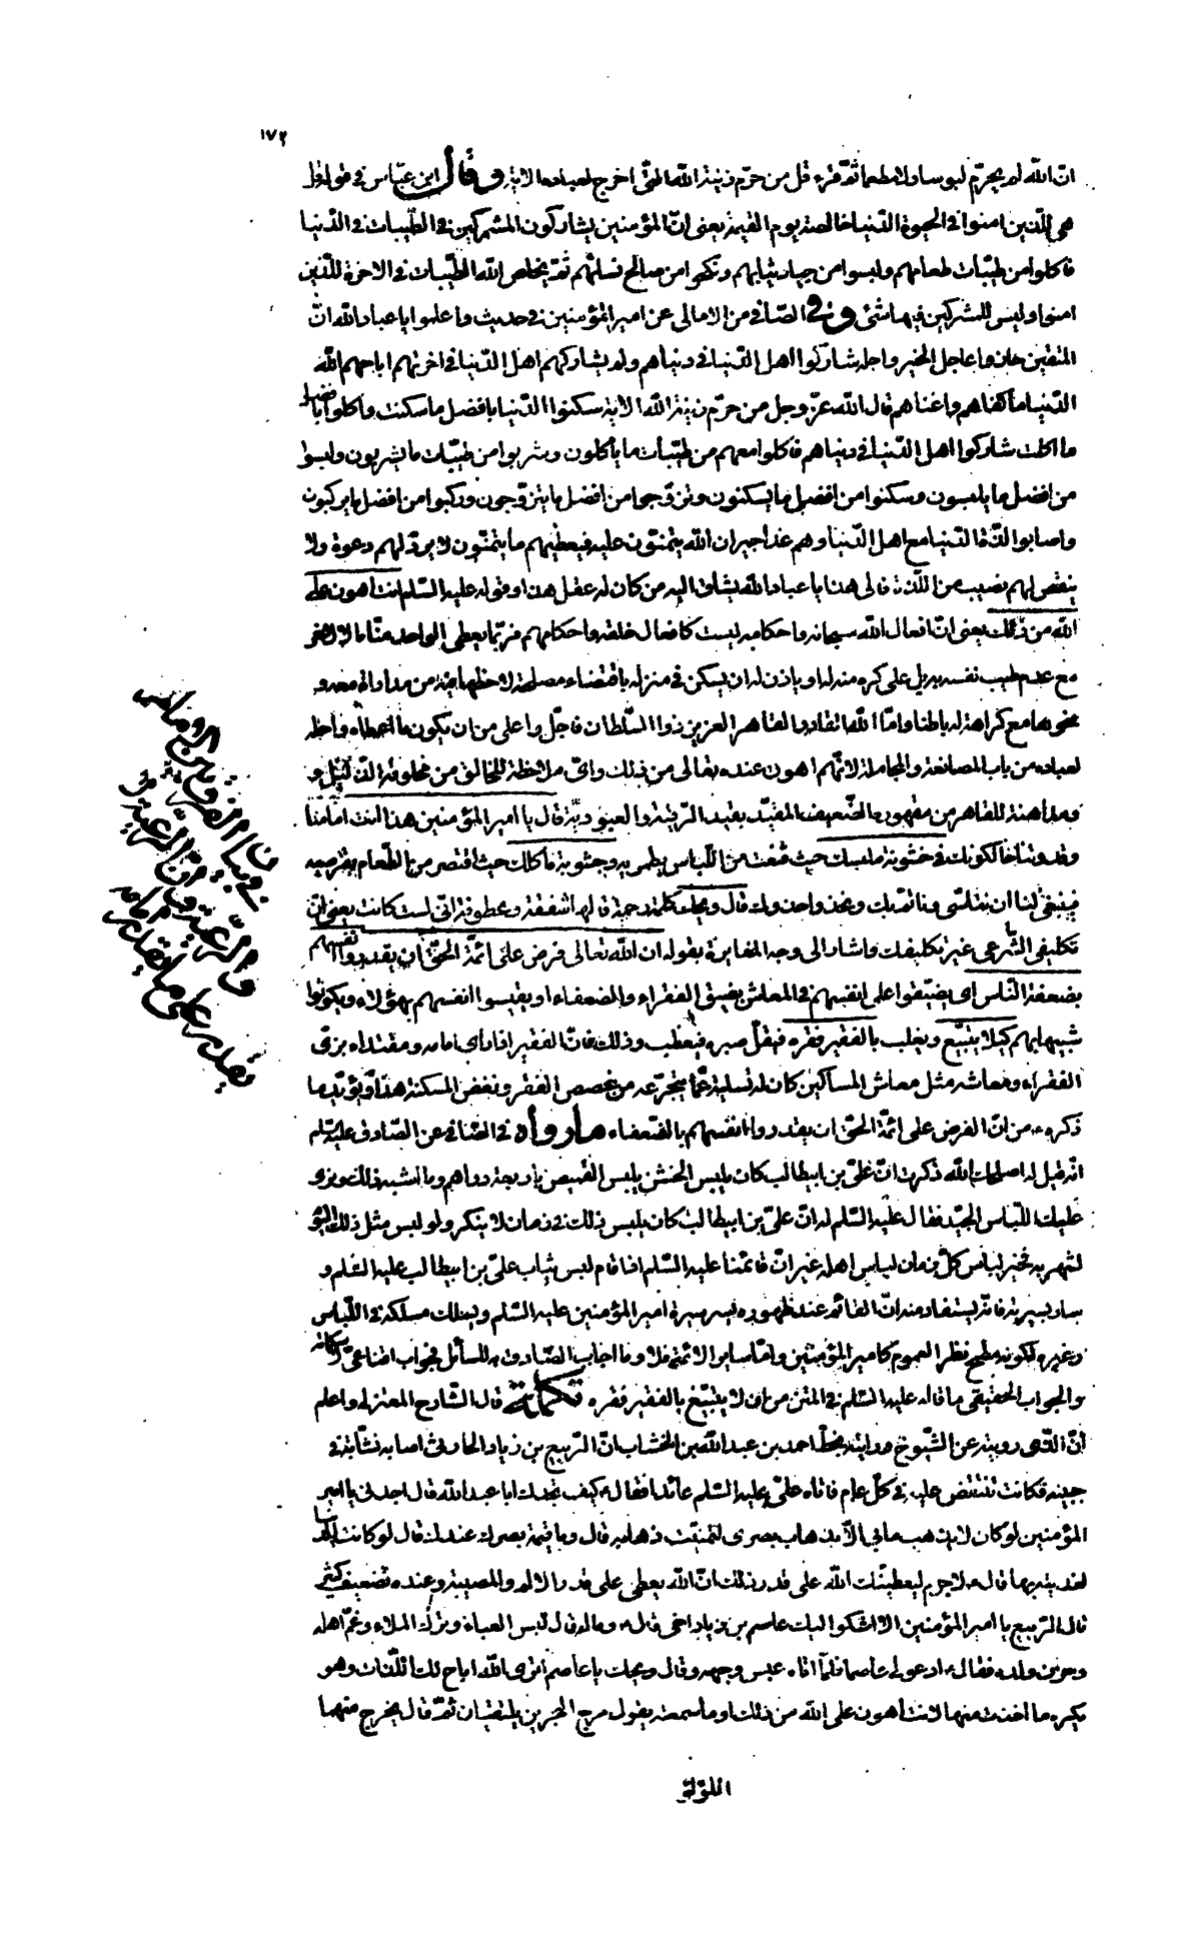 ١٧٢
انّ الله لم يحرّم لبوسا ولا مطعما ثمّ قرء قل من حرّم زينة الله الّتى اخرج لعباده الاية وقال ابن عبّاس فى قوله قل
هى للّذين امنوا فى الحيوة الدّنيا خالصة يوم القيمة يعنى انّ المؤمنين يشاركون المشركين فى الطّيبات فى الدّنيا
فاكلوا من طيّبات طعامهم ولبسوا من جياد ثيابهم ونكحوا من صالح نسائهم ثمّ يخلص الله الطّيّبات فى الاخرة للّذين
امنوا وليس للمشركين فيها شئ وفى الصّافى من الامالى عن امير المؤمنين فى حديث واعلموا يا عباد الله انّ
المتقين حازوا عاجل الخير واجله شاركوا اهل الدّنيا فى دنياهم ولم يشاركهم اهل الدّنيا فى اخرتهم اباحهم الله
الدّنيا ما كفاهم واغناهم قال الله عزّ وجل من حرّم زينة الله الاية سكنوا الدّنيا بافضل ما سكنت واكلوا بافضل
ما اكلت شاركوا اهل الدّنيا فى دنياهم فاكلوا معهم من طيّبات ما ياكلون وشربوا من طيّبات ما يشربون ولبسوا
من افضل ما يلبسون وسكنوا من افضل ما يسكنون وتزوّجوا من افضل ما يتزوّجون وركبوا من افضل ما يركبون
واصابوا لذّة الدّنيا مع اهل الدّنيا وهم غدا جيران الله يتمنّون عليه فيعطيهم ما يتمنّون لا يردّ لهم دعوة ولا
ينقص لهم نصيب من اللّذة فالى هذا يا عباد الله يشاق اليه من كان له عقل هذا وقوله عليه السّلم انت اهون على
الله من ذلك يعنى انّ افعال الله سبحانه واحكامه ليست كافعال خلقه واحكامهم فربّما يعطى الواحد منّا مالا لاخر
مع عدم طيب نفسه به بل على كره منه له او ياذن له ان يسكن فى منزله باقتضاء مصلحة لاحظها فيه من مداراة معه و
نحوها مع كراهته له باطنا وامّا الله القادر القاهر العزيز ذو السّلطان فاجلّ واعلى من ان يكون ما اعطاه واحله
لعباده من باب المصانعة والمجاملة لانّهم اهون عنده تعالى من ذلك واىّ ملاحظة للخالق من مخلوقه الذّليل و
ومداهنة للقاهر من مقهوره الضّعيف المقيّد بقيد الرّقية والعبوديّة قال يا امير المؤمنين هذا انت امامنا
وقدوتنا فالكون فى خشونة ملبسك حيث قنعت من اللّباس بطمريه وجشوبة ماكلك حيث اقتصر من الطّعام بقرصيه
فينبغى لنا ان نتاسّى وناتمّ بك ونحذو حذوك قال ويحك كلمة رحمة قالها شفقة وعطوفة انّى لست كانت يعنى انّ
تكليفى الشّرعى غير تكليفك واشار الى وجه المغايرة بقوله ان الله تعالى فرض على ائمّة الحقّ ان يقدروا انفسهم
بضعفة النّاس اى يضيّقوا على انفسهم فى المعاش بضيق الفقراء والضعفاء او يقيسوا انفسهم بهؤلاء ويكونوا
شبيها بهم كيلا يتبيّغ ويغلب بالفقير فقره فيقلّ صبره فيعطب وذلك فانّ الفقير اذا راى امامه ومقتداه بزىّ
الفقراء ومعاشه مثل معاش المساكين كان له تسلية عمّا يتجرّعه من غصص الفقر ومضض المسكنة هذا ويؤيّد ما
ذكره من انّ الفرض على ائمّة الحقّ ان يقدروا انفسهم بالضّعفاء ما رواه فى الصّافى عن الصّادق عليه السّلم
انّه قيل له اصلحك الله ذكرت انّ علىّ بن ابيطالب كان يلبس الخشن يلبس القميص باربعة دراهم وما اشبه ذلك ونرى
عليك اللّباس الجيّد فقال عليه السّلم له انّ علىّ بن ابيطالب كان يلبس ذلك فى زمان لا ينكر ولو لبس مثل ذلك اليوم
لشهر به فخير لباس كلّ زمان لباس اهله غير انّ قائمنا عليه السّلم اذا قام لبس ثياب علىّ بن ابيطالب عليه السّلم و
سار بسيرته فانّه يستفاد منه انّ القائم عند ظهوره يسير سيرة امير المؤمنين عليه السّلم ويسلك مسلكه فى اللّباس
وغيره لكونه مطمح نظر العموم كامير المؤمنين وامّا ساير الائمّة فلا وما اجاب الصّادق به للسّائل فجواب اقناعىّ
والجواب الحقيقى ما قاله عليه السّلم فى المتن من ان لا يتبيّغ بالفقير فقره تكملة قال الشّارح المعتزلى واعلم
انّ الّذى رويته عن الشّيوخ ورايته بخطّ احمد بن عبد الله بن الخشاب انّ الرّبيع بن زياد الحارثى اصابه نشّابة فى
جبينه فكانت تنتقض عليه فى كلّ عام فاتاه علىّ عليه السّلم عائدا فقال كيف تجدك ابا عبد الله قال اجدنى يا امير
المؤمنين لو كان لا يذهب ما بى الّا بذهاب بصرى لتمنّيت ذهابه قال وما قيمة بصرك عندك قال لو كانت لى الدّنيا
لفديته بها قال لا جرم ليعطينّك الله على قدر ذلك انّ الله يعطى على قدر الالم والمصيبة وعنده تضعيف كثير
قال الرّبيع يا امير المؤمنين الا اشكو اليك عاصم بن زياد اخى قال وماله قال لبس العباء وترك الملاء وغمّ اهله
وحزن ولده فقال ادعوا لى عاصما فلمّا اتاه عبس وجهه وقال ويحك يا عاصم اترى الله اباح لك اللّذات وهو
يكره ما اخذت منها لانت اهون على الله من ذلك او ما سمعته يقول مرج البحرين يلتقيان ثمّ قال يخرج منهما
اللؤلؤ